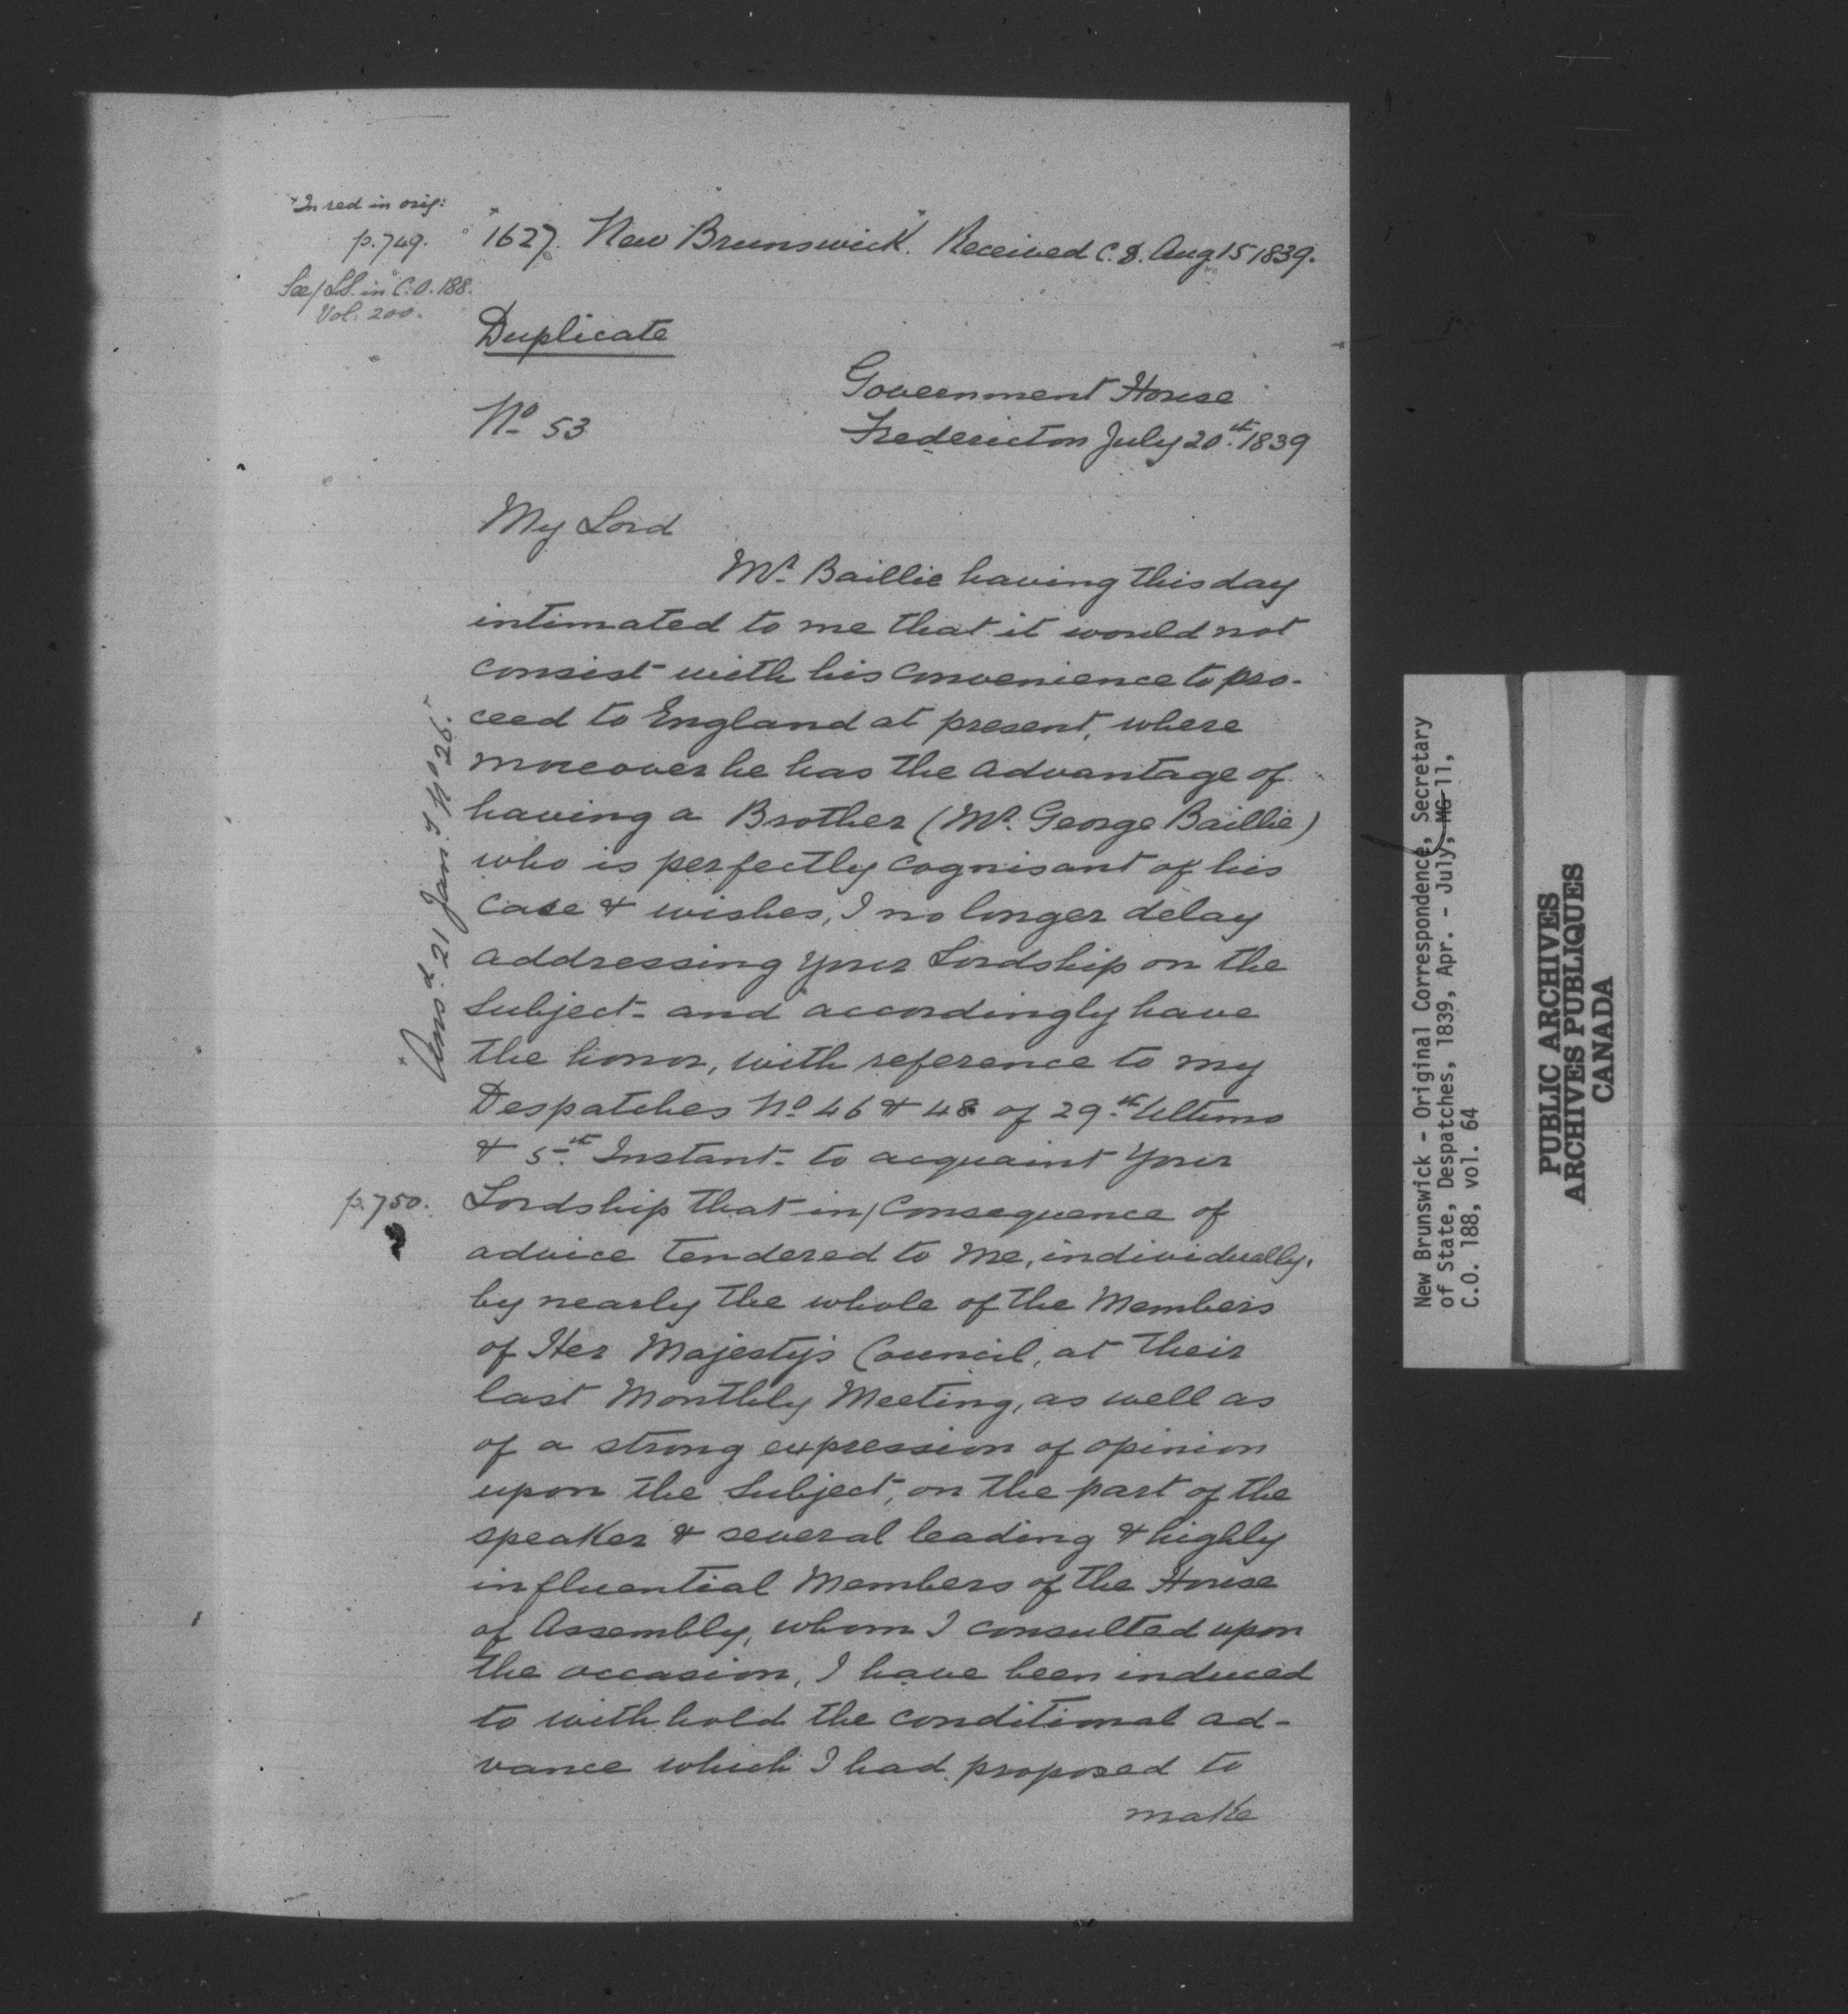 *In red in orig:
p. 749.
See/LS. in C.O. 188.
Vol. 200.
"1627. New Brunswick". Received C.D. Aug 15 1839.
Duplicate
Government House
No 53
Fredericton July 20th. 1839
My Lord
Mr. Baillie having this day
intimated to me that it would not
consist with his convenience to pro-
ceed to England at present, where
moreover he has the advantage of
having a Brother (Mr. George Baillie)
who is perfectly cognisant of his
case & wishes, I no longer delay
addressing your Lordship on the
subject - and accordingly have
the honor, with reference to my
Despatches No 46 & 48 of 29th. Ultimo
& 5th. Instant - to acquaint your
p. 750.
Lordship that in/consequence of
advice tendered to me, individually,
by nearly the whole of the Members
of Her Majesty's Council, at their
last Monthly Meeting, as well as
of a strong expression of opinion
upon the subject, on the part of the
speaker & several leading & highly
influential Members of the House
of Assembly, whom I consulted upon
the occasion, I have been induced
to withhold the conditional ad-
vance which I had proposed to
make
"Ansd. 21 Jany No 26."
New Brunswick - Original Correspondence, Secretary
of State, Despatches, 1839, Apr. - July, MG 11,
C.O. 188, vol. 64
PUBLIC ARCHIVES
ARCHIVES PUBLIQUES
CANADA